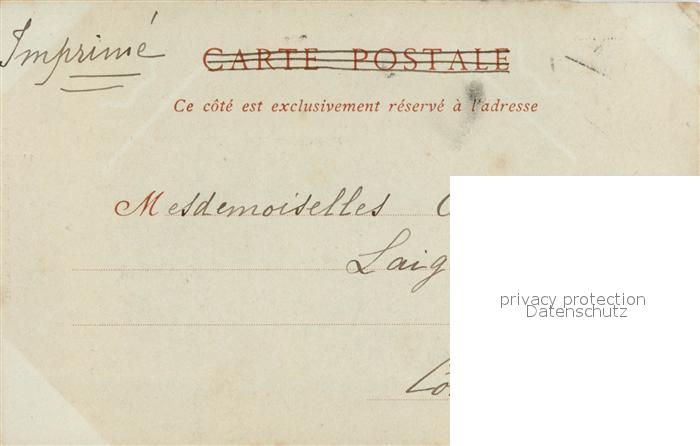 Imprimé
CARTE POSTALE
Ce côté est exclusivement réservé à l'adresse
Mesdemoiselles
Laig
privacy protection
Datenschutz